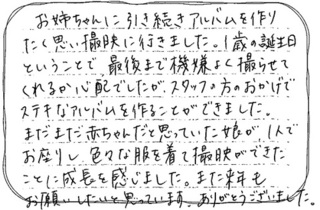 お姉ちゃんに引き続きアルバムを作り
たく思い撮映に行きました。1歳の誕生日
ということで 最後まで機嫌よく撮らせて
くれるか心配でしたが、スタッフの方のおかげで
ステキなアルバムを作ることができました。
まだまだ赤ちゃんだと思っていた娘が、1人で
お座りし、色々な服を着て撮映ができた
ことに成長を感じました。また来年も
お願いしたいと思っています。ありがとうございました。